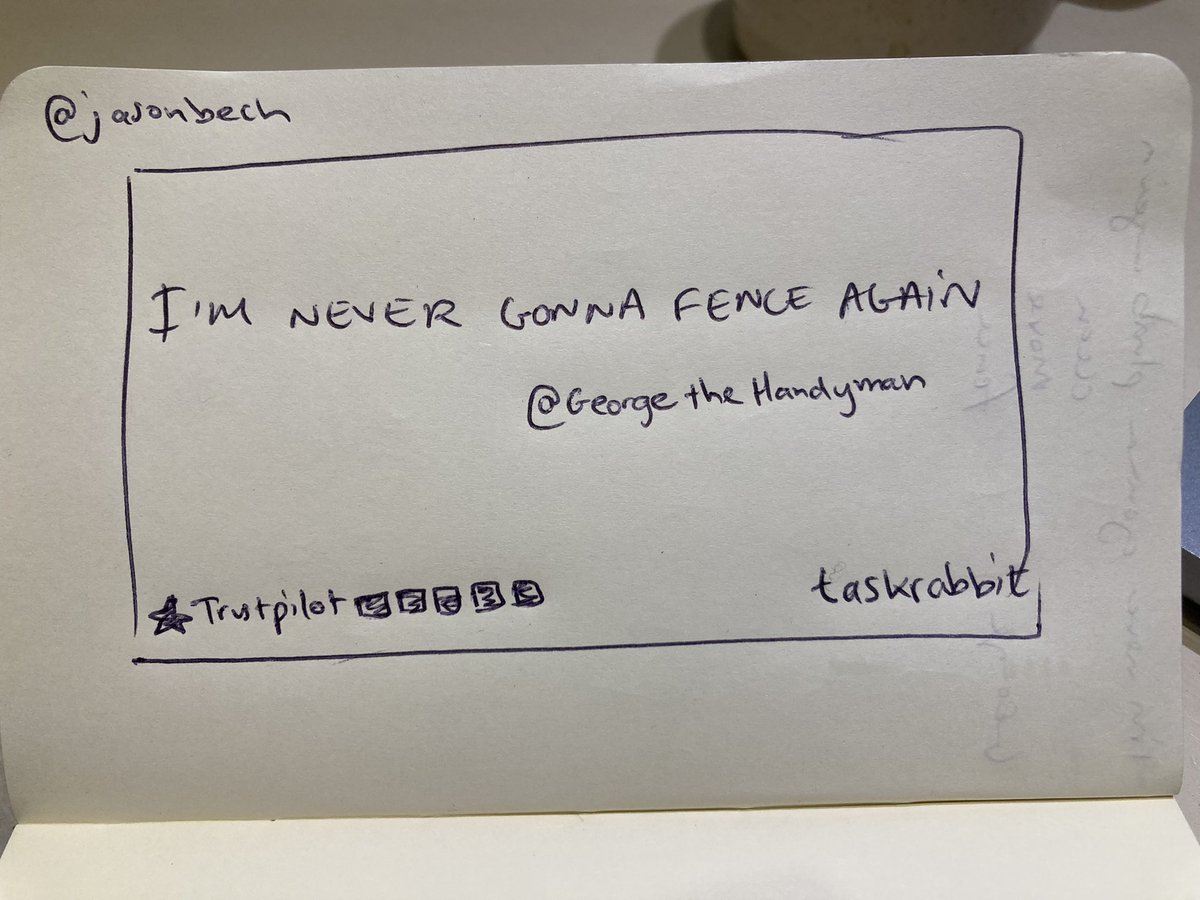 @jasonbech
I'M NEVER GONNA FENCE AGAIN
@George the Handyman
Trustpilot
taskrabbit